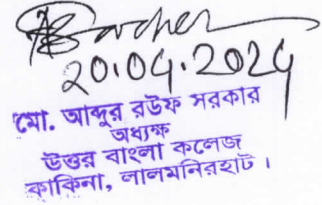 20.04.2024
মো. আব্দুর রউফ সরকার
অধ্যক্ষ
উত্তর বাংলা কলেজ
কাকিনা, লালমনিরহাট।